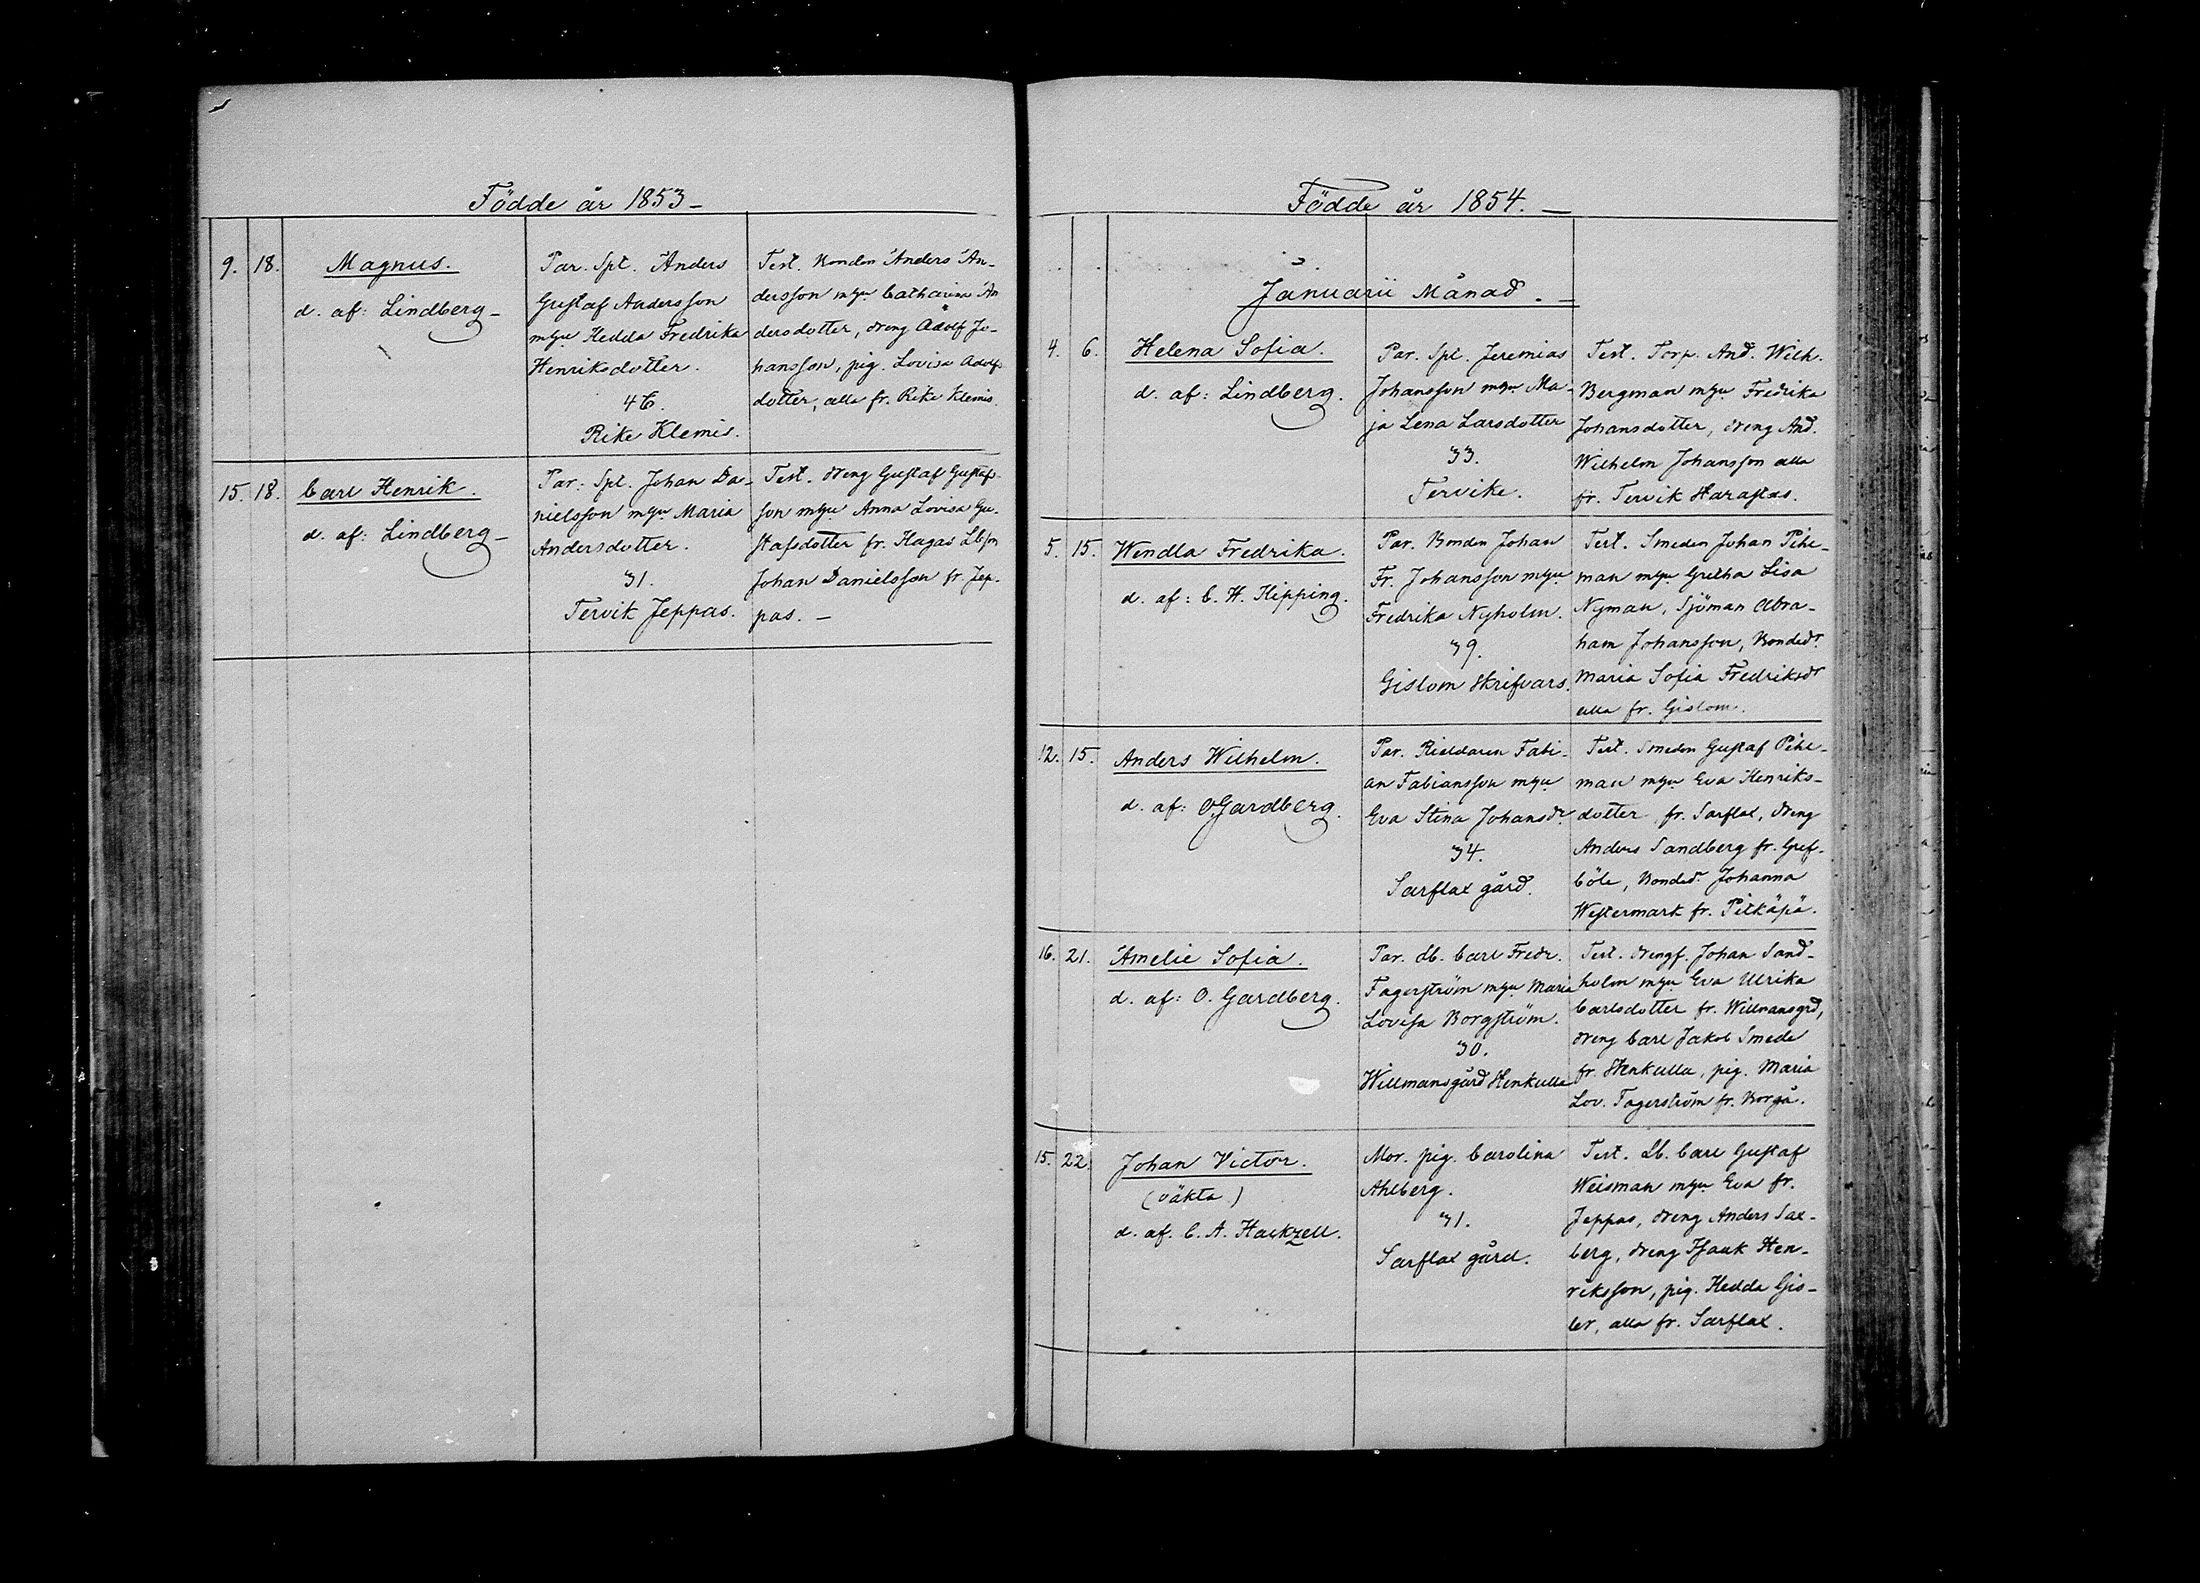 Födde år 1853 –
9. 18. Magnus.
d. af: Lindberg –
Par. Spt. Anders
Gustaf Andersson
mhu Hedda Fredrika
Henriksdotter.
46.
Rike Klemis.
Test. Bonden Anders An-
dersson mhu Catharina An
dersdotter, dreng Adolf Jo-
hansson, pig. Lovisa Adolfs
dotter, alla fr. Rike Klemis.
15. 18. Carl Henrik.
d. af: Lindberg –
Par: Spt. Johan Da-
nielsson mhu Maria
Andersdotter.
31.
Tervik Jeppas.
Test. dreng Gustaf Gustafs-
son mhu Anna Lovisa Gu-
stafsdotter fr. Hagas Lbsn
Johan Danielsson fr. Jep-
pas. –
Födde år 1854. –
Januarii Månad. –
4. 6. Helena Sofia.
d. af: Lindberg.
Par. Spt. Jeremias
Johansson mhu Ma-
ja Lena Larsdotter
33.
Tervike.
Test. Torp. And. Wilh.
Bergman mhu Fredrika
Johansdotter, dreng And.
Wilhelm Johansson alla
fr. Tervik Harastas.
5. 15. Wendla Fredrika.
d. af: C. H. Hipping.
Par. Bonden Johan
Fr. Johansson mhu
Fredrika Nyholm.
39.
Gislom Skrifvars.
Test. Smeden Johan Pihl-
man mhu Gretha Lisa
Nyman, Sjöman Abra-
ham Johansson, Bondedr
Maria Sofia Fredriksdr
alla fr. Gislom.
12. 15. Anders Wilhelm.
d. af: O. Gardberg.
Par. Rieldaren Fabi-
an Fabiansson mhu
Eva Stina Johansdr
34.
Sarflax gård.
Test. Smeden Gustaf Pihl-
man mhu Eva Henriks-
dotter, fr. Sarflax, dreng
Anders Sandberg fr. Gref-
böle, Bondedr Johanna
Westermark fr. Pitkäpä.
16. 21. Amelie Sofia.
d. af: O. Gardberg.
Par. Lb. Carl Fredr.
Fagerström mhu Maria
Lovisa Borgström.
30.
Willmansgård Stenkulla
Test. drengf. Johan Sand-
holm mhu Eva Ulrika
Carlsdotter fr. Willmansgrd,
dreng Carl Jakob Smeds
fr. Stenkulla, pig. Maria
Lov. Fagerström fr. Borgå.
15. 22. Johan Victor.
(oäkta)
d. af. C. A. Hackzell.
Mor. pig. Carolina
Ahlberg.
31.
Sarflax gård.
Test. Lb. Carl Gustaf
Weisman mhu Eva fr.
Jeppas, dreng Anders Sax-
berg, dreng Isaak Hen-
riksson, pig. Hedda Gis-
ler, alla fr. Sarflax.